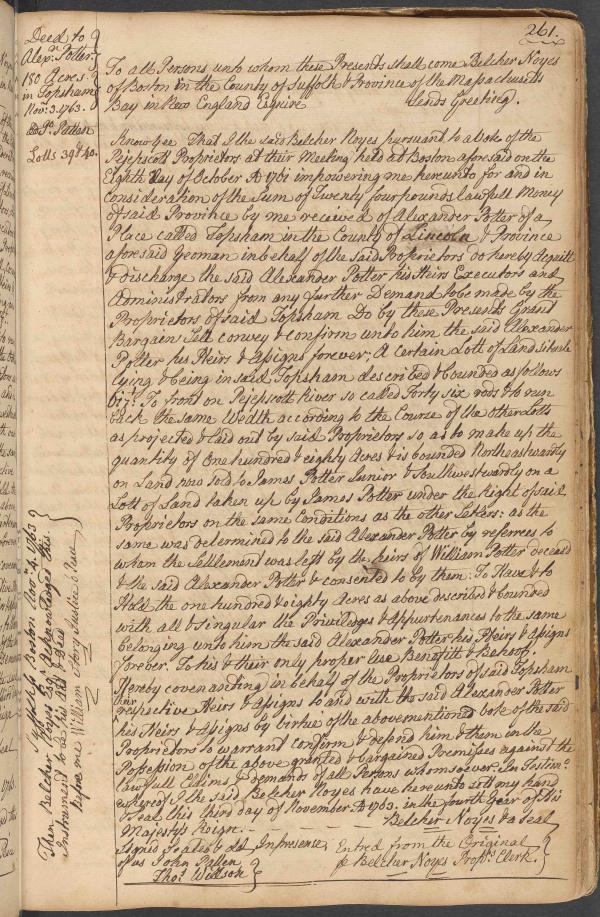 261.
Deed to
Alexr. Potter.
180 Acres.
in Topsham
Nov. 3. 1763.
Lotts 39 & 40.
To all Persons unto whom these Presents shall come Belcher Noyes
of Boston in the County of Suffolk & Province of the Massachusetts
Bay in New England Esquire Sends Greeting.
Know Yee That I the said Belcher Noyes pursuant to a Vote of the
Pejepscott Proprietors at their Meeting held at Boston aforesaid on the
Eighth day of October AD 1761 impowering me hereunto for and in
consideration of the Sum of Twenty four pounds lawfull Money
of said Province by me received of Alexander Potter of a
Place called Topsham in the County of Lincoln & Province
aforesaid Yeoman in behalf of the said Proprietors do hereby Acquitt
& discharge the said Alexander Potter his Heirs Executors and
Administrators from any further Demand to be made by the
Proprietors of said Topsham Do by these Presents Grant
Bargain Sell convey & confirm unto him the said Alexander
Potter his Heirs & Assigns forever, A certain Lott of Land situate
lying & being in said Topsham described & bounded as follows
Vizt. To front on Pejepscott River so called Forty six rods & to run
back the same Wedth according to the Course of the other Lotts
as projected & laid out by said Proprietors so as to make up the
quantity of One hundred & eighty Acres & is bounded Northeastwardly
on Land now sold to James Potter Junior & Southwestwardly on a
Lott of Land taken up by James Potter under the Right of said
Proprietors on the same Conditions as the other Settlers: as the
same was determined to the said Alexander Potter by referrees to
whom the Settlement was left by the heirs of William Potter deceasd
& the said Alexander Potter & consented to by them. To Have & to
Hold the one hundred & eighty Acres as above described & bounded
with all & singular the Priviledges & Appurtenances to the same
belonging unto him the said Alexander Potter his Heirs & Assigns
forever. To his & their only proper Use Benefitt & Behoof.
Hereby covenanting in behalf of the Proprietors of said Topsham
their
respective Heirs & Assigns to and with the said Alexander Potter
his Heirs & Assigns by virtue of the abovementioned Vote of the said
Proprietors to warrant confirm & defend him & them in the
Possession of the above granted & bargained Premises against the
lawfull Claims & Demands of all Persons whomsoever. In Testimo.
whereof I the said Belcher Noyes have hereunto sett my hand
& Seal this third day of November AD 1763. in the fourth Year of His
Majestys Reign. Belcher Noyes & a Seal
Signd Sealed & dd In presence
of us John Patten
Thos. Willson
Entred from the Original
p Belcher Noyes Proprs. Clerk.
Suffolk ss Boston Novr. 4. 1763
Then Belcher Noyes Esq. Acknowledged this
Instrument to be his Act & Deed
before me William Story Justice o Peace